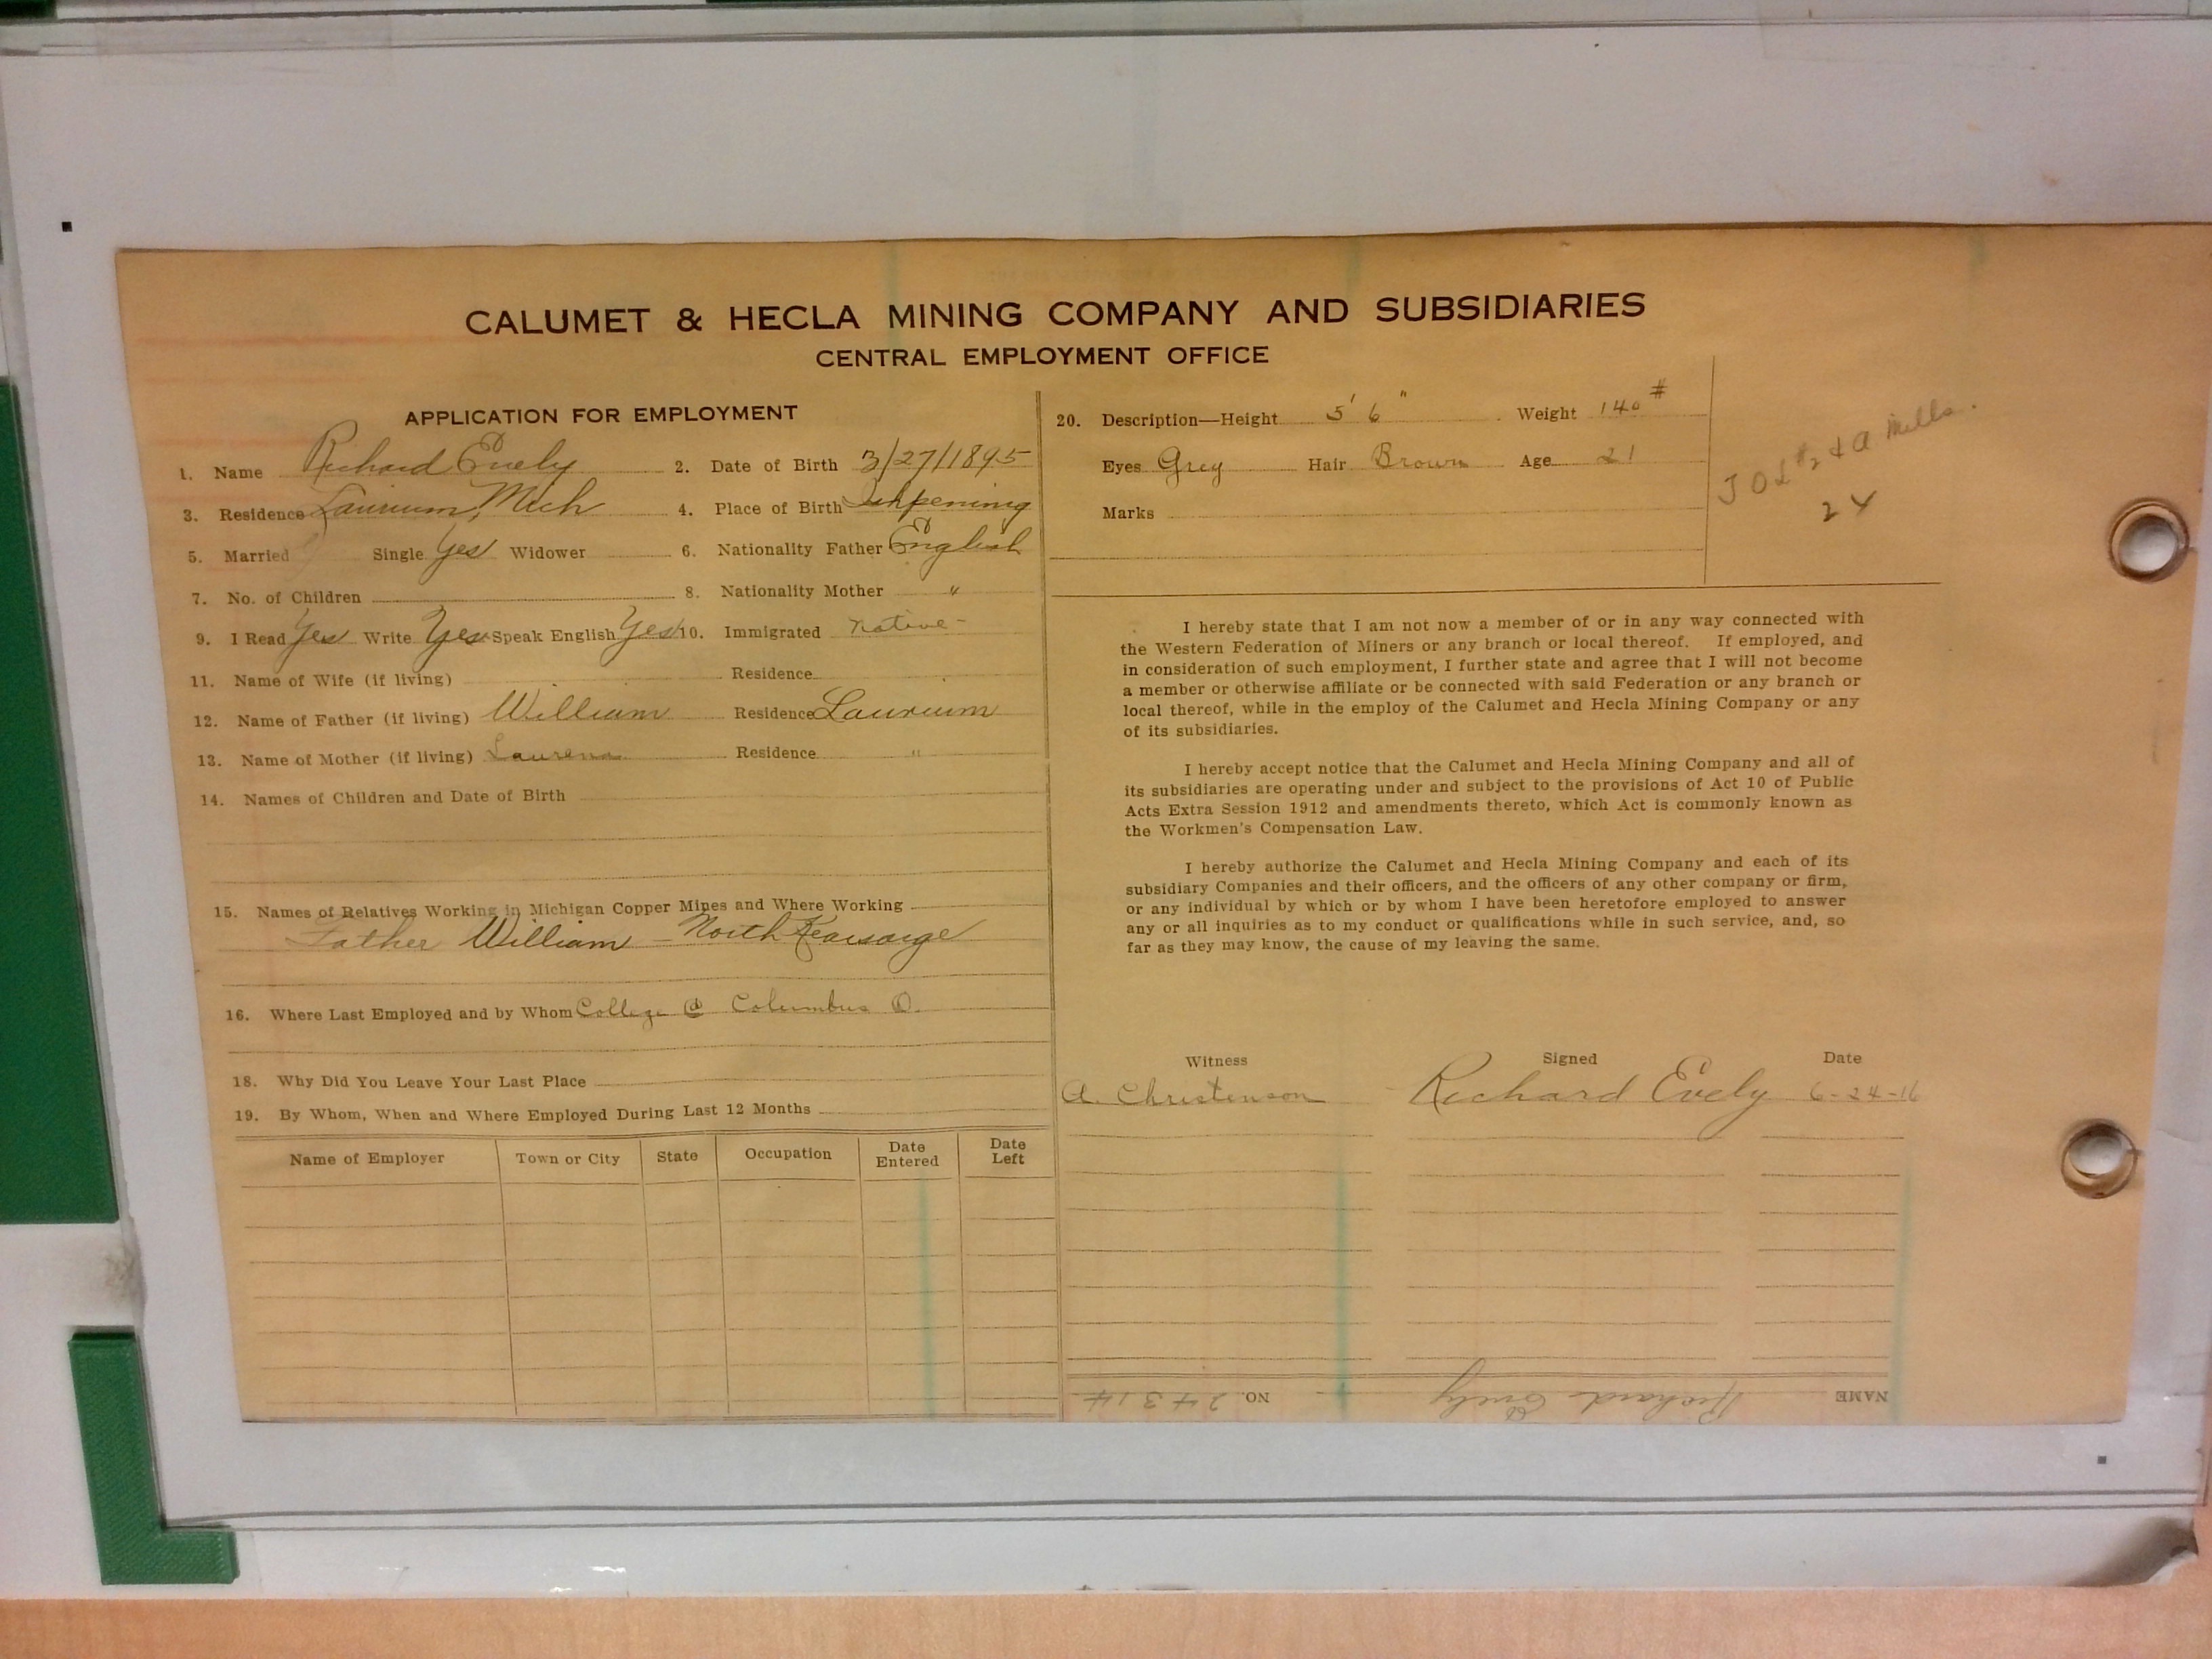 CALUMET & HECLA MINING COMPANY AND SUBSIDIARIES
CENTRAL EMPLOYMENT OFFICE
APPLICATION FOR EMPLOYMENT
1. Name Richard Evely 2. Date of Birth 3/27/1895
3. Residence Laurium, Mich 4. Place of Birth Ishpeming
5. Married Single Yes Widower 6. Nationality Father English
7. No. of Children 8. Nationality Mother "
9. I Read Yes Write Yes Speak English Yes 10. Immigrated native -
11. Name of Wife (if living) Residence
12. Name of Father (if living) William Residence Laurium
13. Name of Mother (if living) Laurena Residence "
14. Names of Children and Date of Birth
15. Names of Relatives Working in Michigan Copper Mines and Where Working
Father William - North Kearsarge
16. Where Last Employed and by Whom College @ Columbus O.
18. Why Did You Leave Your Last Place
19. By Whom, When and Where Employed During Last 12 Months
Name of Employer Town or City State Occupation Date Entered Date Left
20. Description—Height 5' 6" Weight 140#
Eyes Grey Hair Brown Age 21
Marks
#2 & A Mills.
24
I hereby state that I am not now a member of or in any way connected with
the Western Federation of Miners or any branch or local thereof. If employed, and
in consideration of such employment, I further state and agree that I will not become
a member or otherwise affiliate or be connected with said Federation or any branch or
local thereof, while in the employ of the Calumet and Hecla Mining Company or any
of its subsidiaries.
I hereby accept notice that the Calumet and Hecla Mining Company and all of
its subsidiaries are operating under and subject to the provisions of Act 10 of Public
Acts Extra Session 1912 and amendments thereto, which Act is commonly known as
the Workmen's Compensation Law.
I hereby authorize the Calumet and Hecla Mining Company and each of its
subsidiary Companies and their officers, and the officers of any other company or firm,
or any individual by which or by whom I have been heretofore employed to answer
any or all inquiries as to my conduct or qualifications while in such service, and, so
far as they may know, the cause of my leaving the same.
Witness Signed Date
A. Christenson Richard Evely 6-24-16
NAME Richard Evely NO. 24314